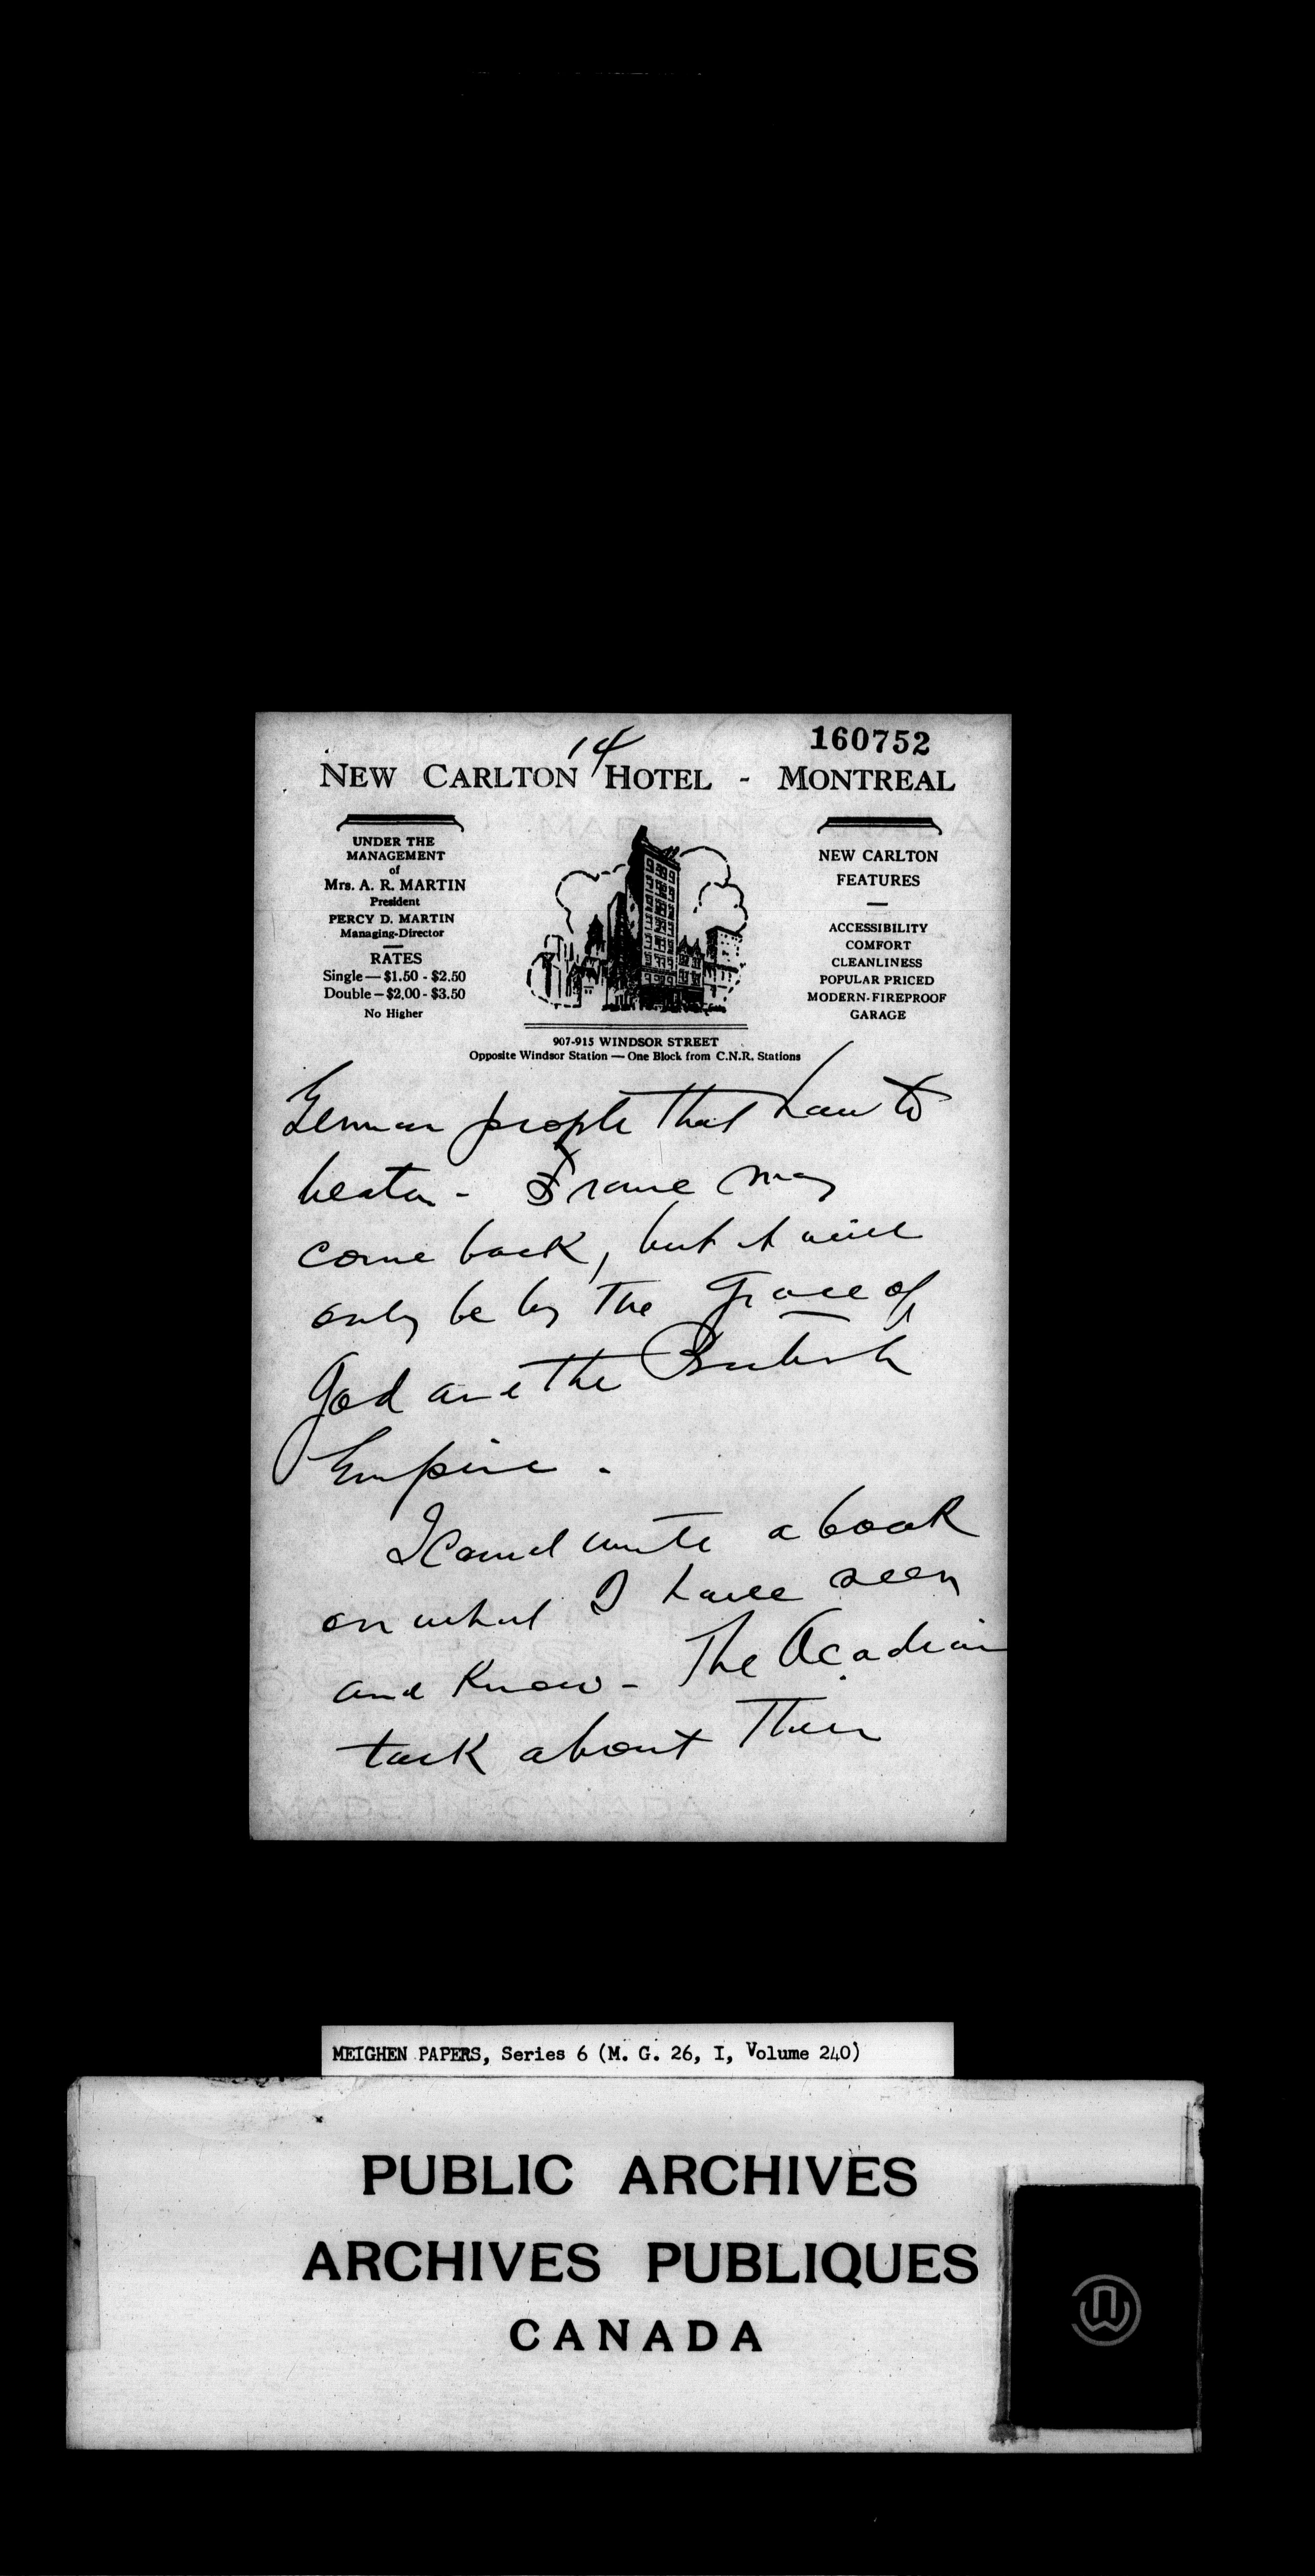 14
160752
NEW CARLTON HOTEL - MONTREAL
UNDER THE
MANAGEMENT
of
Mrs. A. R. MARTIN
President
PERCY D. MARTIN
Managing-Director
RATES
Single — $1.50 - $2.50
Double — $2.00 - $3.50
No Higher
NEW CARLTON
FEATURES
ACCESSIBILITY
COMFORT
CLEANLINESS
POPULAR PRICED
MODERN-FIREPROOF
GARAGE
907-915 WINDSOR STREET
Opposite Windsor Station — One Block from C.N.R. Stations
German people that have to
beaten - France may
come back, but it will
only be by the Grace of
God and the British
Empire.
I could write a book
on what I have seen
and know - The Acadian
talk about their
MADE IN CANADA
MADE IN CANADA
MEIGHEN PAPERS, Series 6 (M. G. 26, I, Volume 240)
PUBLIC ARCHIVES
ARCHIVES PUBLIQUES
CANADA